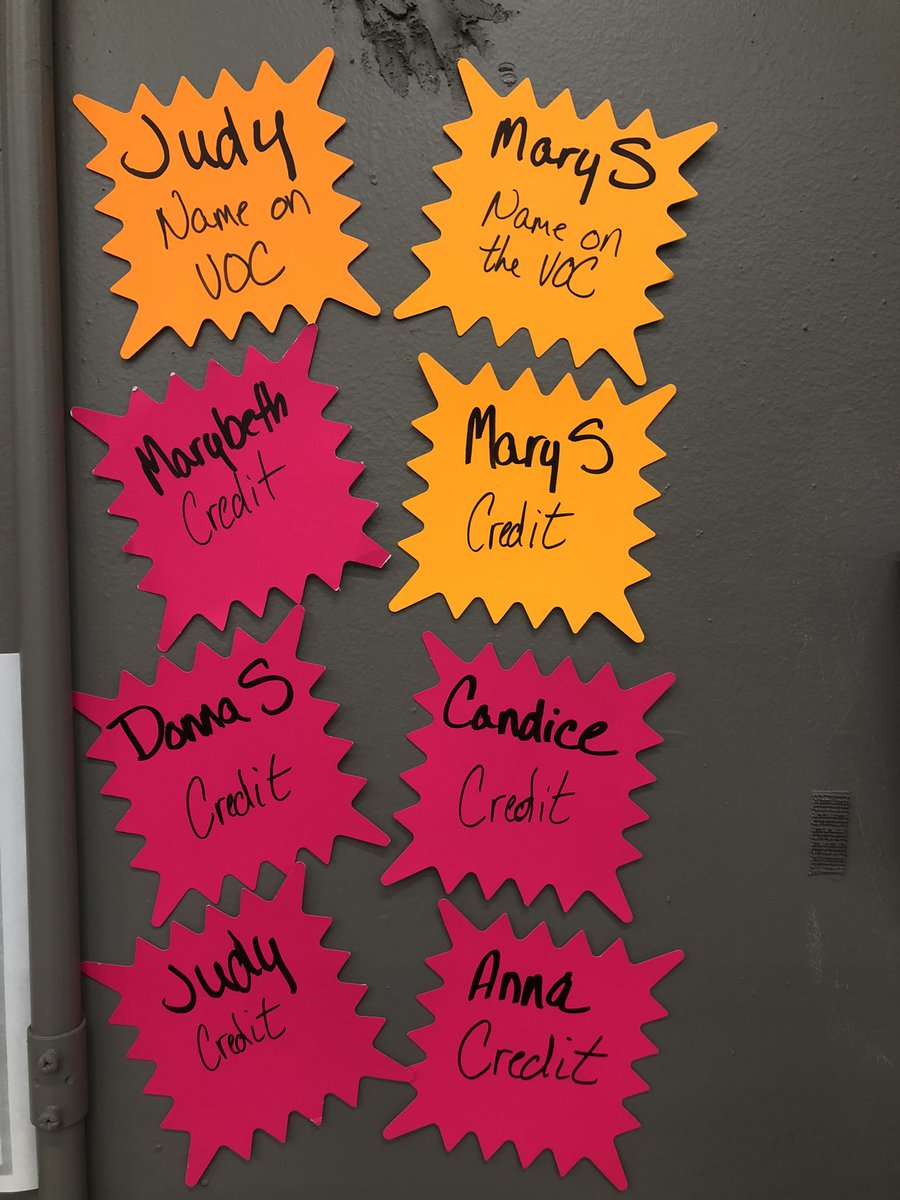 Judy
Name on
VOC
Mary S
Name on
the VOC
Marybeth
Credit
Mary S
Credit
Donna S
Credit
Candice
Credit
Judy
Credit
Anna
Credit